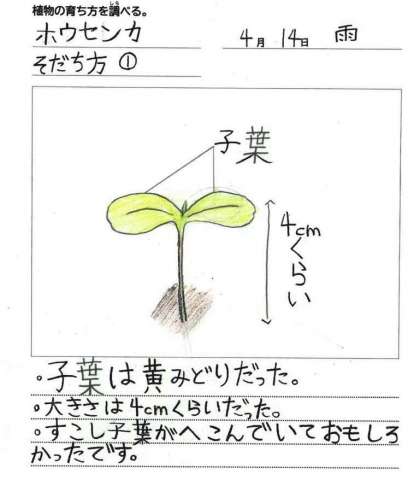 植物の育ち方を調べる。
ホウセンカ
4月 14日 雨
そだち方 ①
子葉
4cmくらい
・子葉は黄みどりだった。
・大きさは4cmくらいだった。
・すこし子葉がへこんでいておもしろ
かったです。